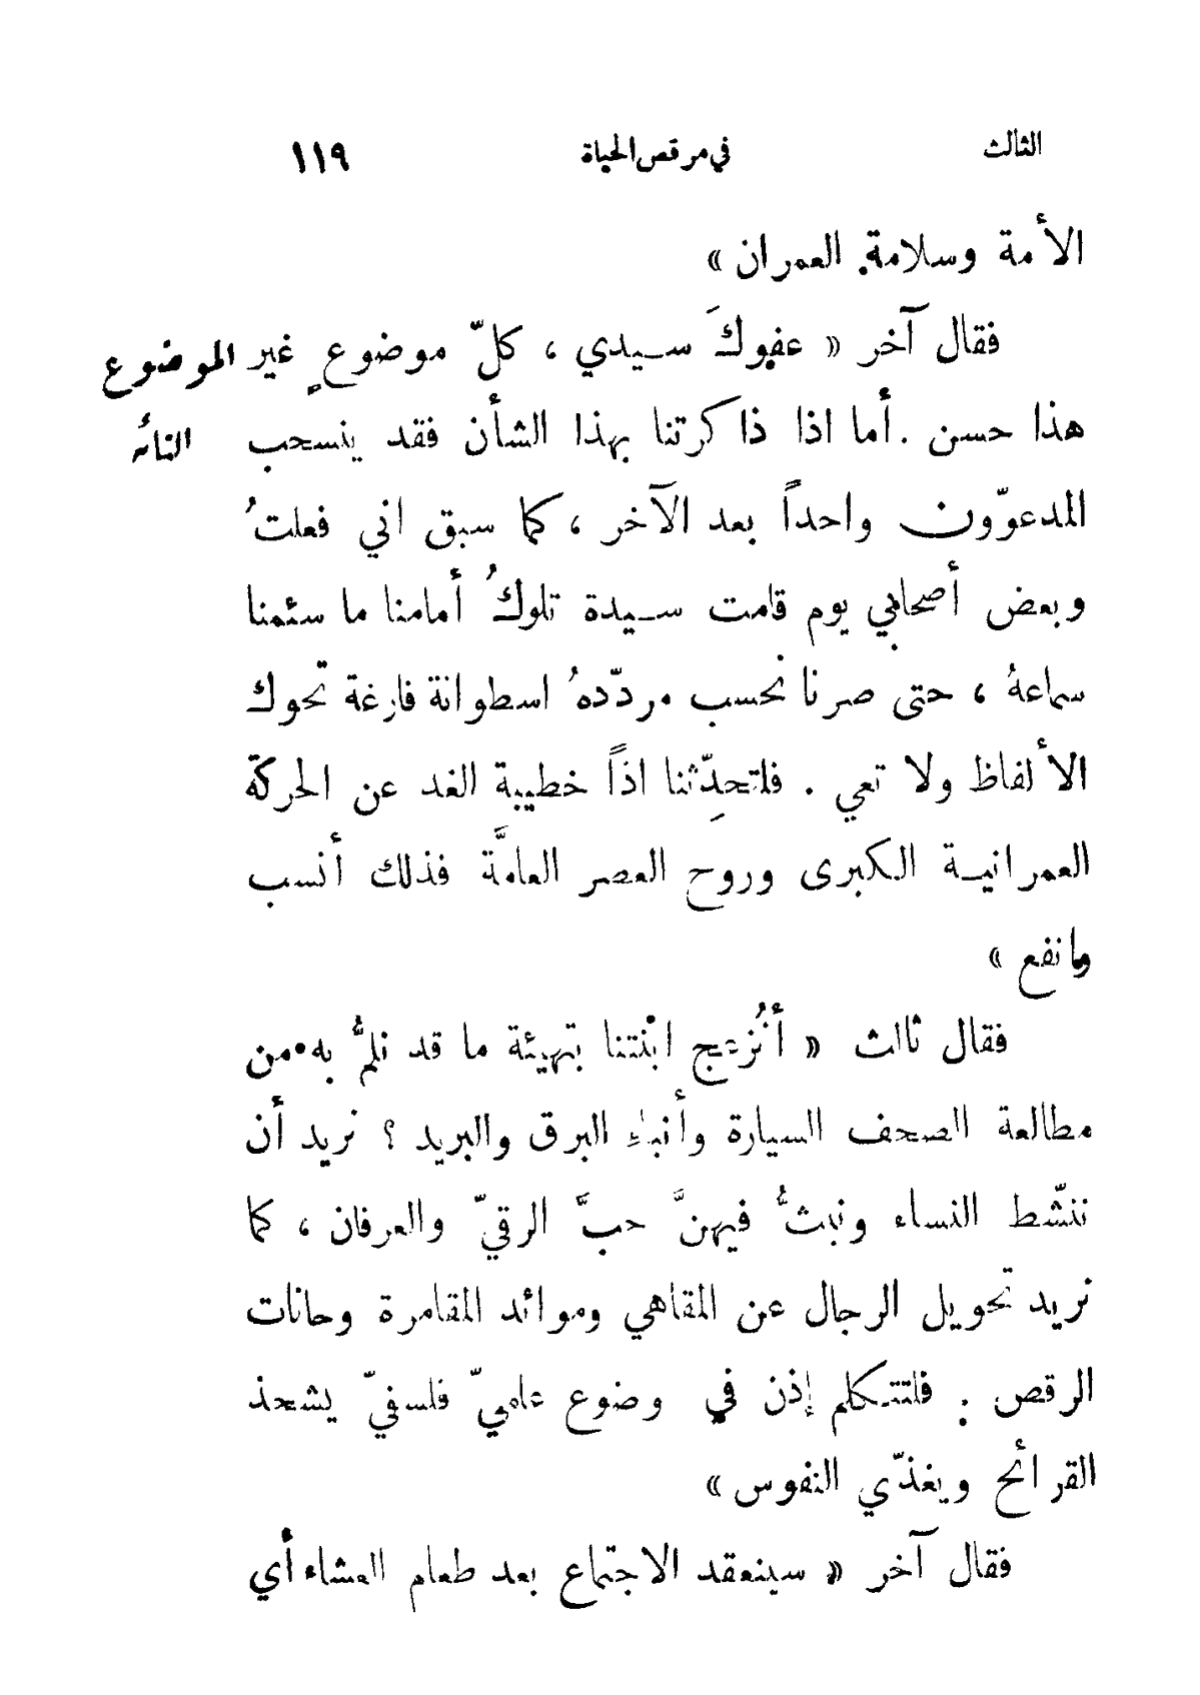 الثالث في مرقص الحياة ١١٩
الأمة وسلامة العمران »
فقال آخر « عفوكَ سيدي ، كلّ موضوعٍ غير الموضوع
هذا حسن . أما اذا ذاكرتنا بهذا الشأن فقد ينسحب
التائه
المدعوّون واحداً بعد الآخر ، كما سبق اني فعلتُ
وبعض أصحابي يوم قامت سيدة تلوكُ أمامنا ما سئمنا
سماعهُ ، حتى صرنا نحسب مردّدهُ اسطوانة فارغة تحوك
الألفاظ ولا تعي . فلتحدِّثنا اذاً خطيبة الغد عن الحركة
العمرانية الكبرى وروح العصر العامَّة فذلك أنسب
وانفع »
فقال ثالث « أنُزعج ابنتنا بتهيئة ما قد نلمُّ به من
مطالعة الصحف السيارة وأنباءِ البرق والبريد ؟ نريد أن
ننشّط النساء ونبثُّ فيهنَّ حبَّ الرقيّ والعرفان ، كما
نريد تحويل الرجال عن المقاهي وموائد المقامرة وحانات
الرقص . فلتتكلم إذن في وضوع علميّ فلسفيّ يشحذ
القرائح ويغذّي النفوس »
فقال آخر « سينعقد الاجتماع بعد طعام العشاء أي